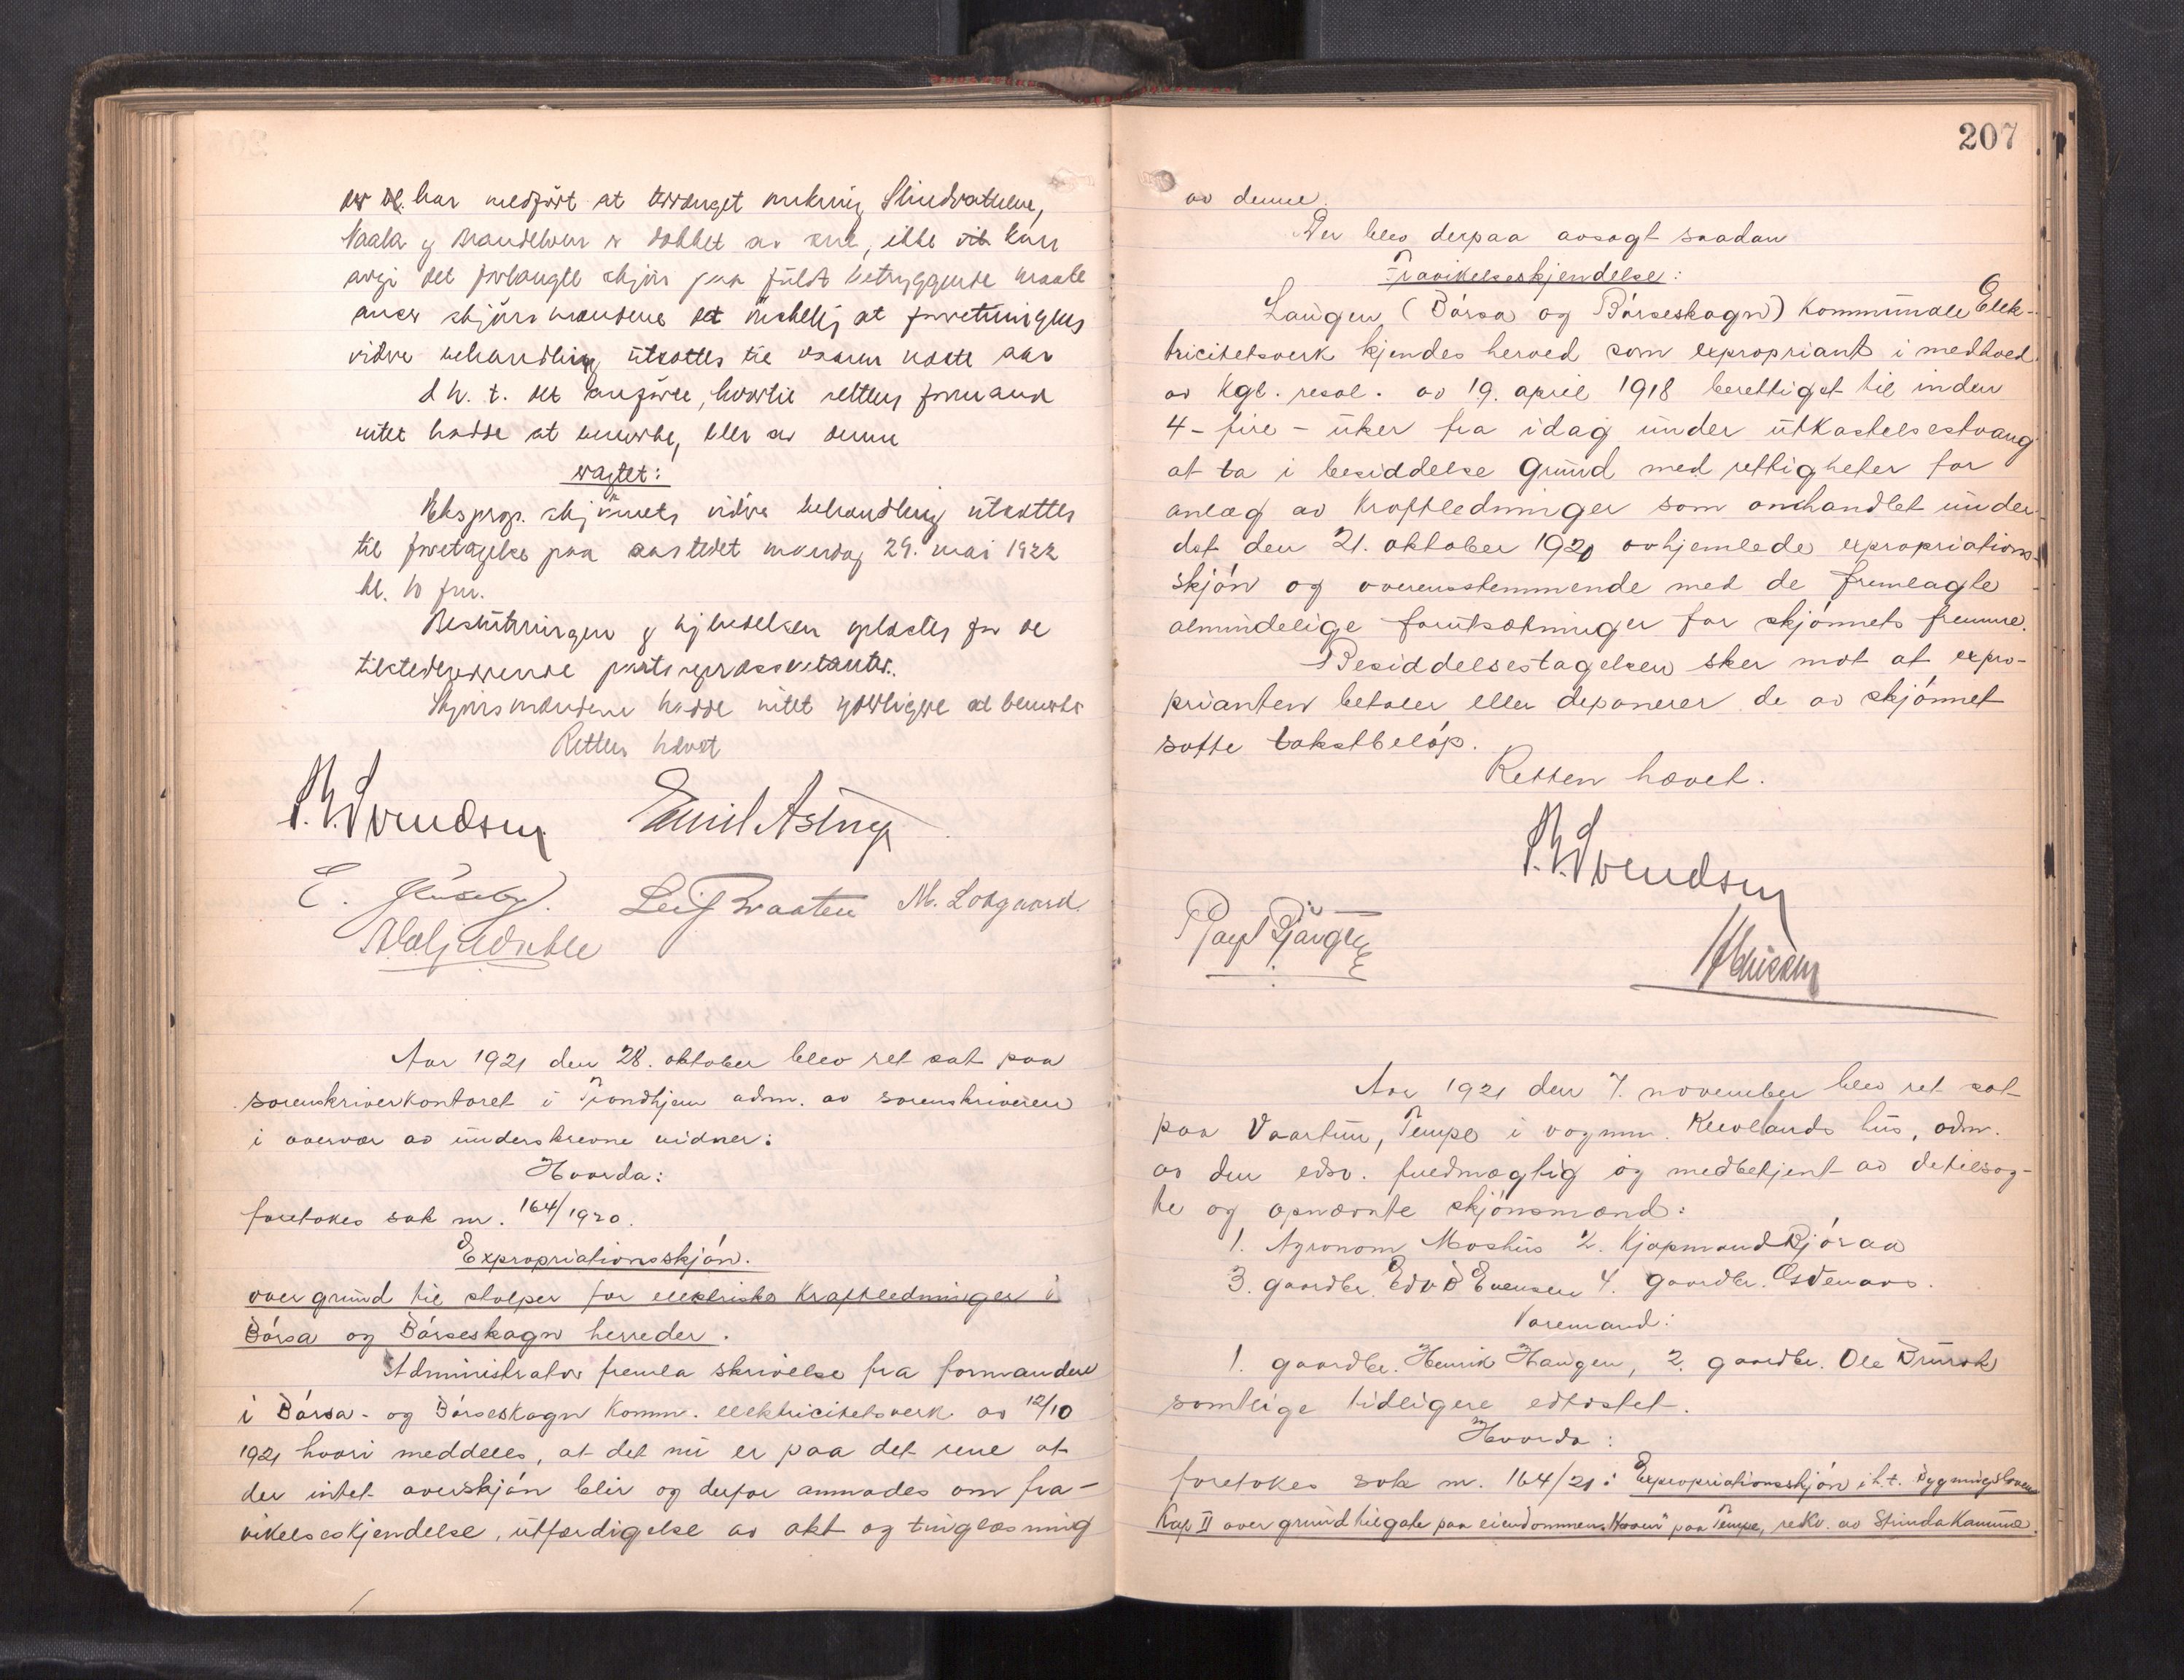 har medført at terrænget omkring
er dækket av sne, ikke kan
avgi det forlangte skjøn paa fuldt betryggende maate
anser skjønsmændene det ønskelig at forretningens
vidre behandling utsættes til vaaren næste aar
I h. t. det anførte, hvortil rettens formand
intet hadde at bemerke, blev av denne
vagtet:
Eksprop. skjønnets vidre behandling utsættes
til foretagelse paa aastedet mandag 29. mai 1922
kl. 10 fm.
Beslutningen og kjendelsen oplæstes for de
tilstedeværende partsrepræsentanter.
Skjønsmændene hadde intet yderligere at bemerke
Retten hævet
Svendsen Emil
E. Huseby. Leif Braaten M. Lodgaard
Aar 1921 den 28. oktober blev ret sat paa
sorenskriverkontoret i Trondhjem adm. av sorenskriveren
i overvær av underskrevne vidner:
Hvorda:
foretokes sak nr. 164/1920.
Expropriationsskjøn.
over grund til stolper for elektriske kraftledninger i
Børsa og Børseskogn herreder.
Administrator fremla skrivelse fra formanden
i Børsa- og Børseskogn Komm. elektricitetsverk av 12/10
1921 hvori meddeles, at det nu er paa det rene at
der intet overskjøn blir og derfor anmodes om fra-
vikelseskjendelse, utfærdigelse av akt og tinglæsning
207
av denne.
Der blev derpaa avsagt saadan
Fravikelseskjendelse:
Laugen (Børsa og Børseskogn) Kommunale Elek-
tricitetsverk kjendes herved som expropriant i medhold
av Kgl. resol. av 19. april 1918 berettiget til inden
4 - fire - uker fra idag under utkastelsestvang
at ta i besiddelse Grund med rettigheter for
anlæg av kraftledninger som omhandlet under
det den 21. oktober 1920 avhjemlede expropriations-
skjøn og overensstemmende med de fremlagte
almindelige forutsætninger for skjønnets fremme.
Besiddelsestagelsen sker mot at expro-
prianten betaler eller deponerer de av skjønnet
satte takstbeløp.
Retten hævet.
Svendsen
Aar 1921 den 7. november blev ret sat
paa Vaartun, Tempe i vognm. Kleivlands hus, adm.
av den edsv. fuldmægtig og medbetjent av detilsag-
te og opnævnte skjønsmænd:
1. Agronom Moshus 2. Kjøpmand Bjøraa
3. gaardbr. Edv Evensen 4. gaardbr. Østenaas.
Varemænd:
1. gaardbr. Henrik Haugen, 2. gaardbr. Ole
samtlige tidligere edfæstet.
Hvorda:
foretokes sak nr. 164/21: Expropriationsskjøn i h.t. Bygningsloven
Kap II over grund til gate paa eiendommen "Hoven" paa Tempe, rekv. av Strinda Kommune.